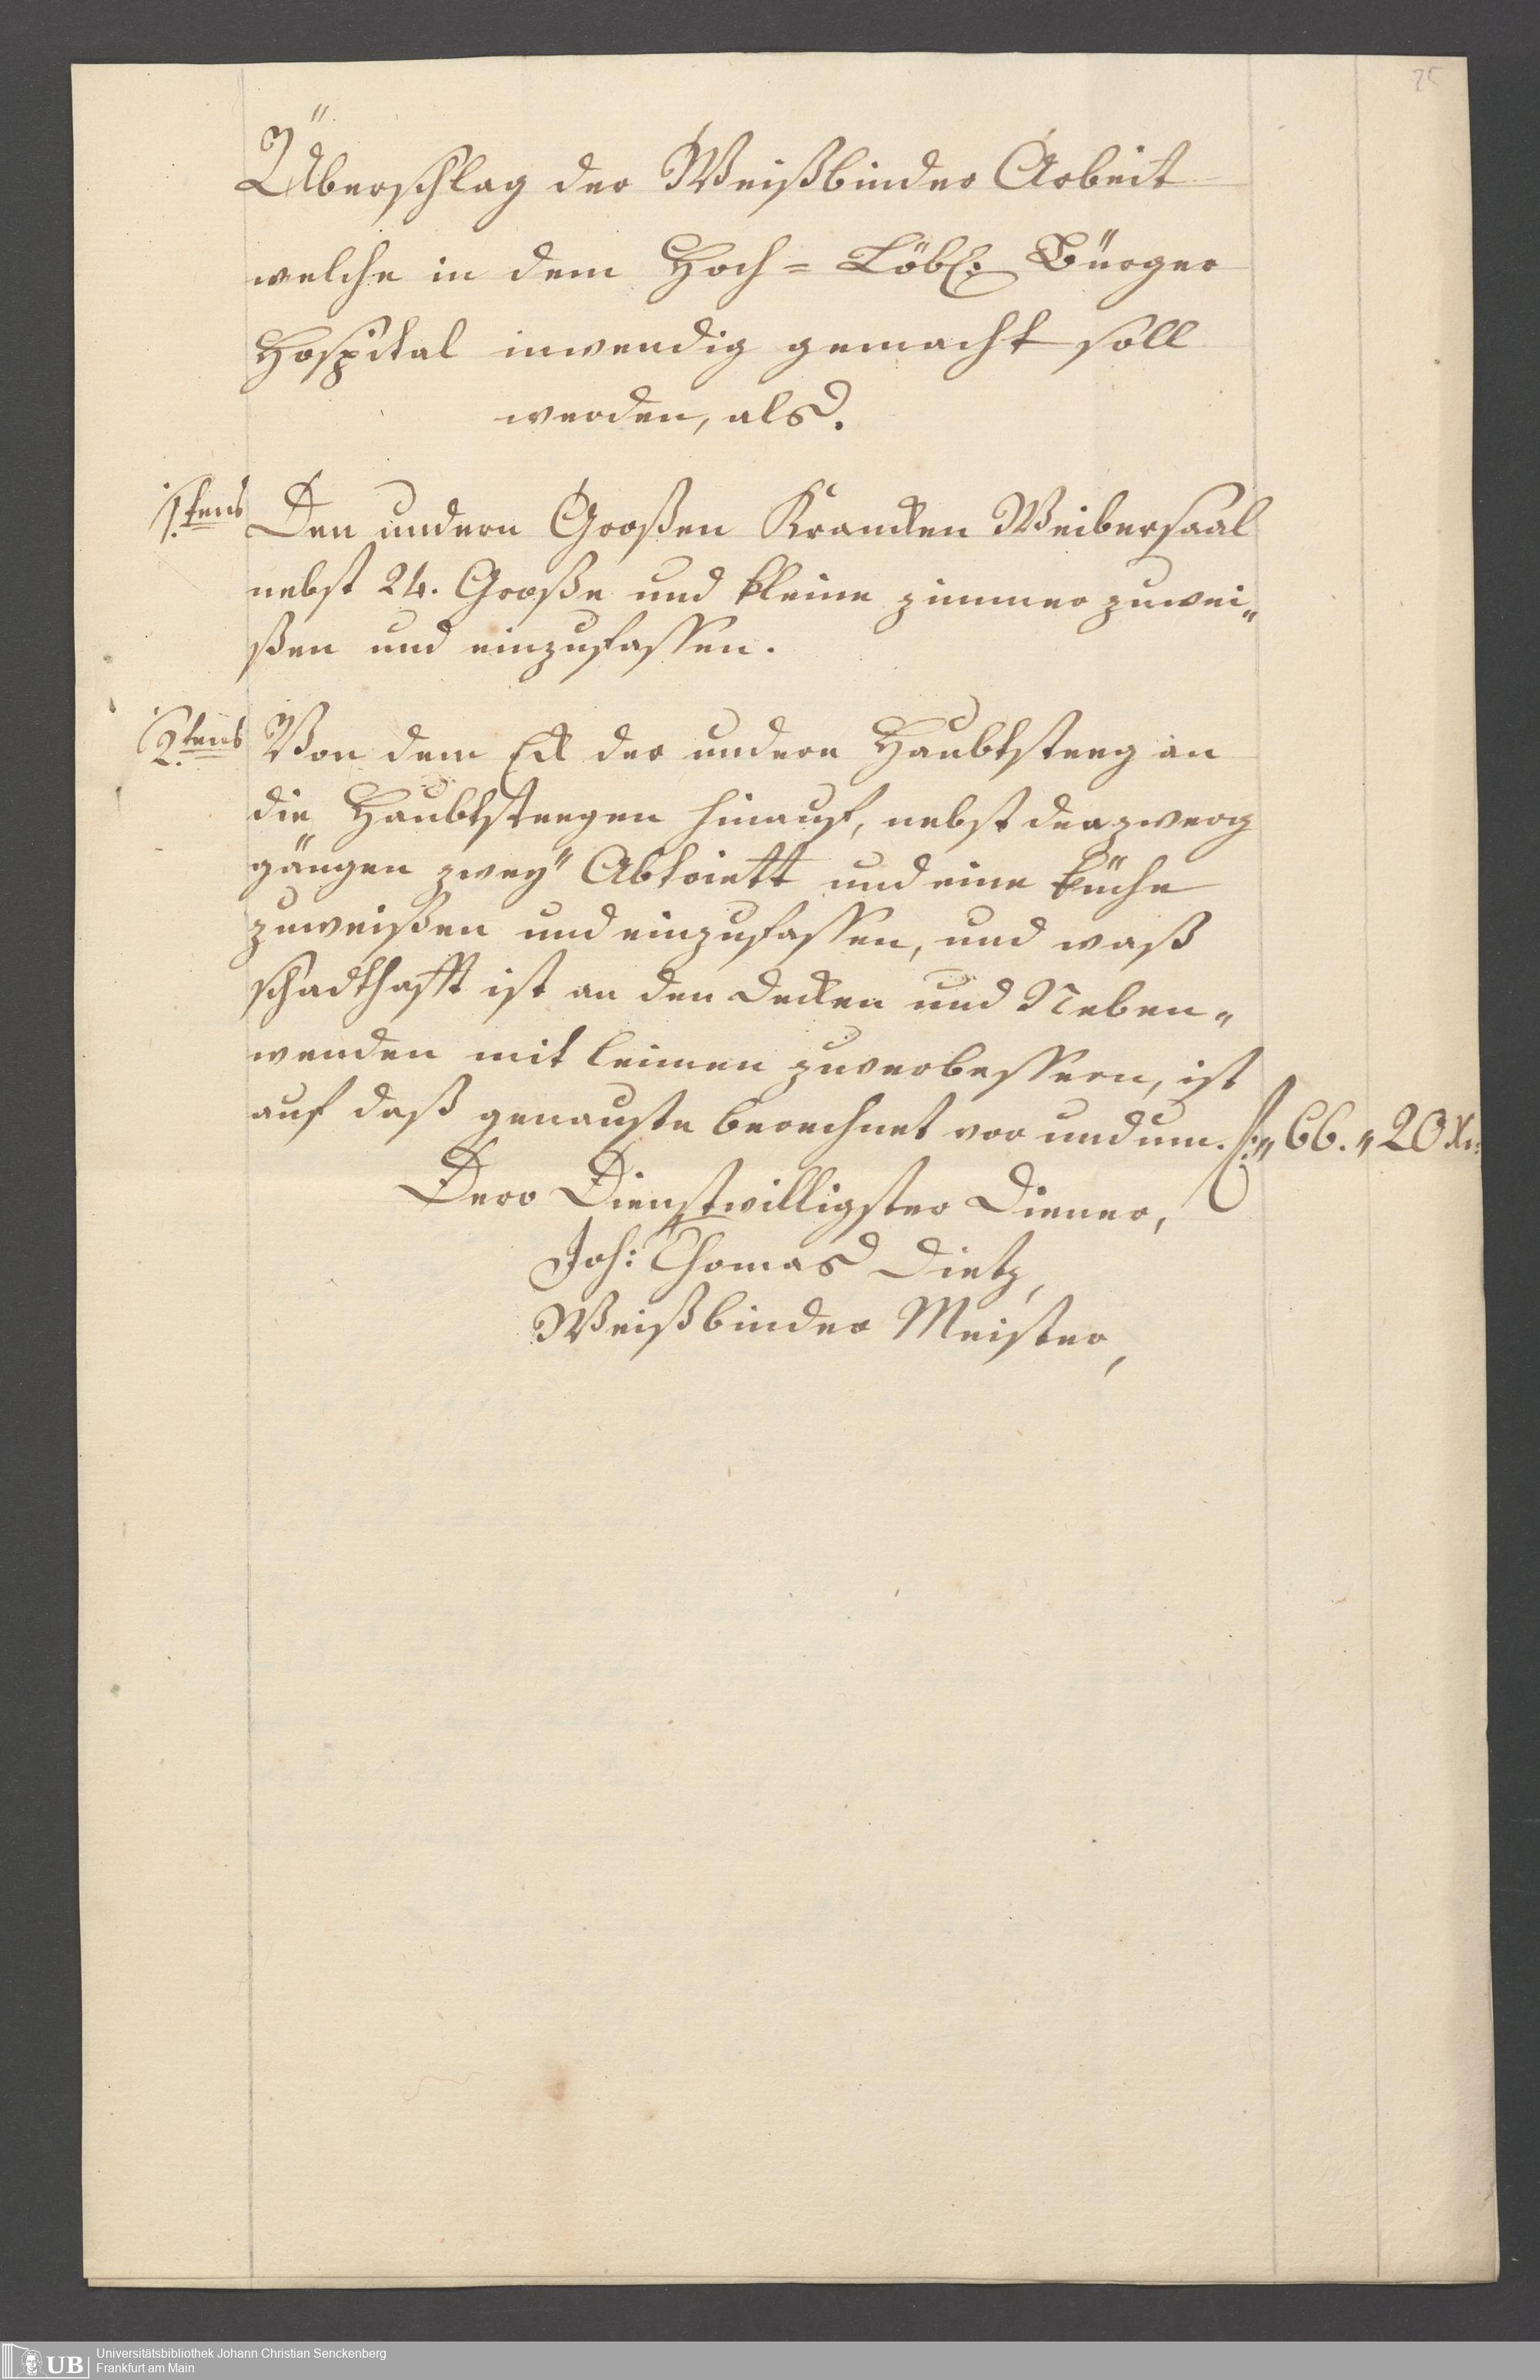 25
Überschlag der Weißbinder Arbeit
welche in dem Hoch= Löbl: Bürger
Hospital inwendig gemacht soll
werden, als.
1.tens Den undern Großen Krancken Weibersaal
nebst 24. Große und kleine zimmer zuwei„
ßen und einzufassen.
2.tens Von dem Eck der undern Haubtsteeg an
die Haubtsteegen hinauf, nebst den zwerg
gängen zwey Abtriett und eine küche
zuweißen und einzufassen, und waß
schadthafft ist an den decken und Neben„
wenden mit leimen zuverbessern, ist
auf daß genauste berechnet vor und um. f:„ 66. „ 20 Xr:
Dero Dienstwilligster Diener,
Joh: Thomas Dietz,
Weißbinder Meister,
UB Universitätsbibliothek Johann Christian Senckenberg
Frankfurt am Main